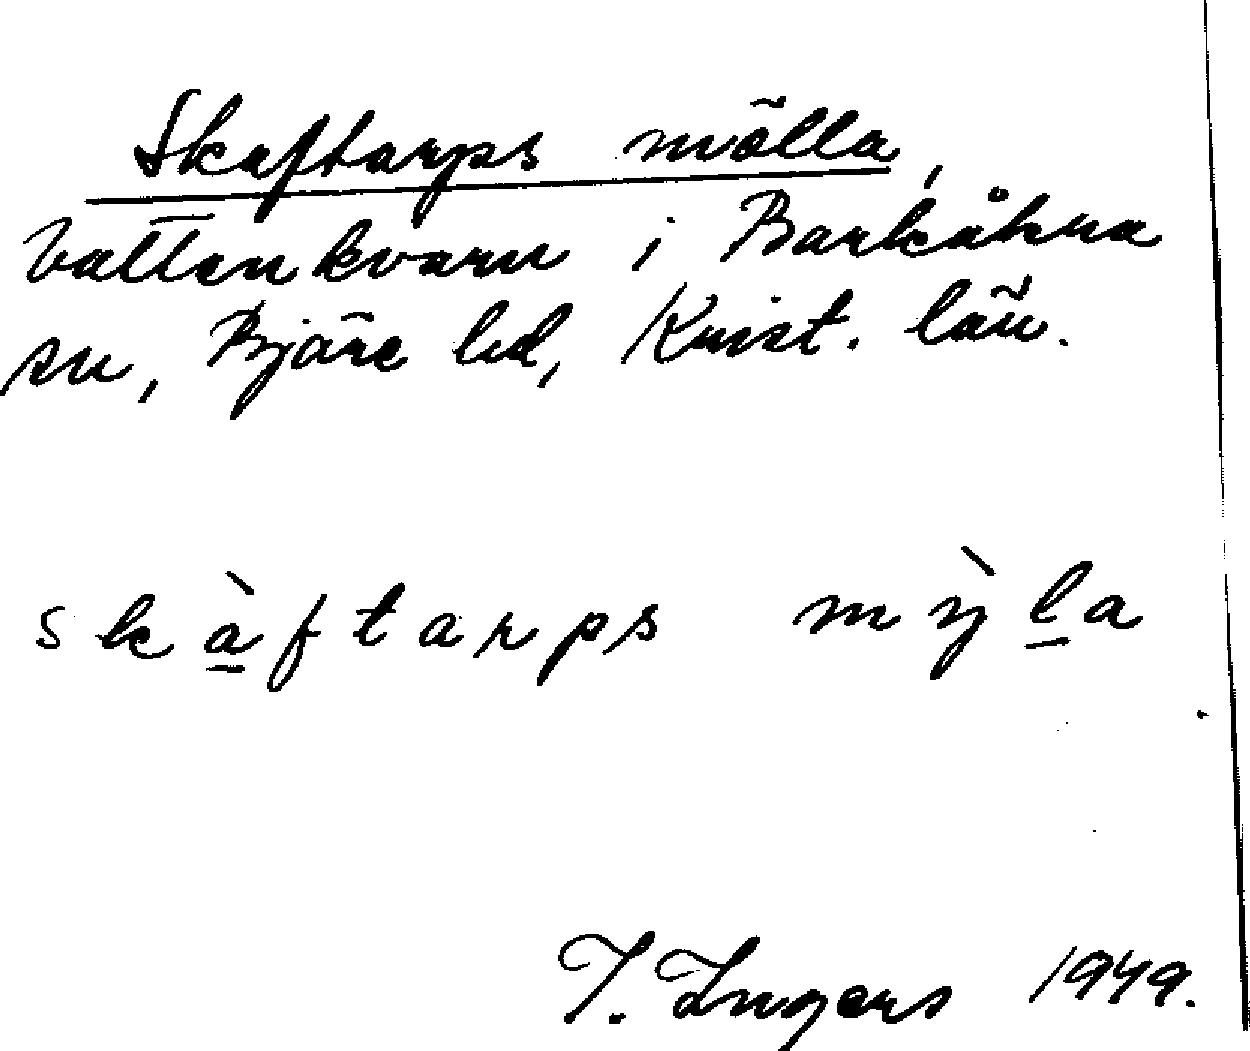 Skaftarps mölla,
vattenkvarn i Barkåkra
sn, Bjäre hd, Krist. län.
skà̠ftarps mỳl̠a
I. Ingers 1949.